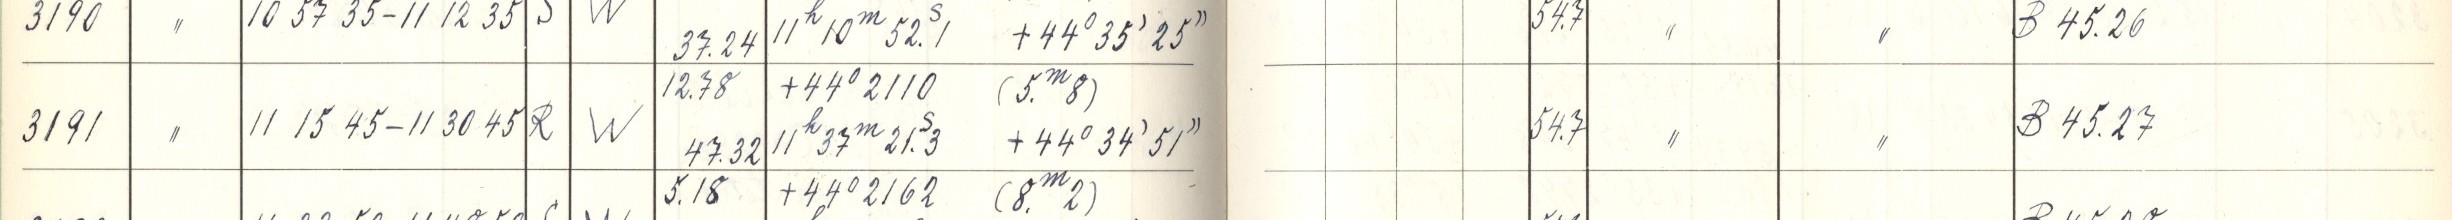 3190 " 10 57 35-11 12 35 S W 37.24 11ʰ10ᵐ52.ˢ1 +44°35'25" 54.7 " " B 45.26
12.78 +44°2110 (5.ᵐ8)
3191 " 11 15 45-11 30 45 R W 47.32 11ʰ37ᵐ21.ˢ3 +44°34'51" 54.7 " " B 45.27
5.18 +44°2162 (8.ᵐ2)